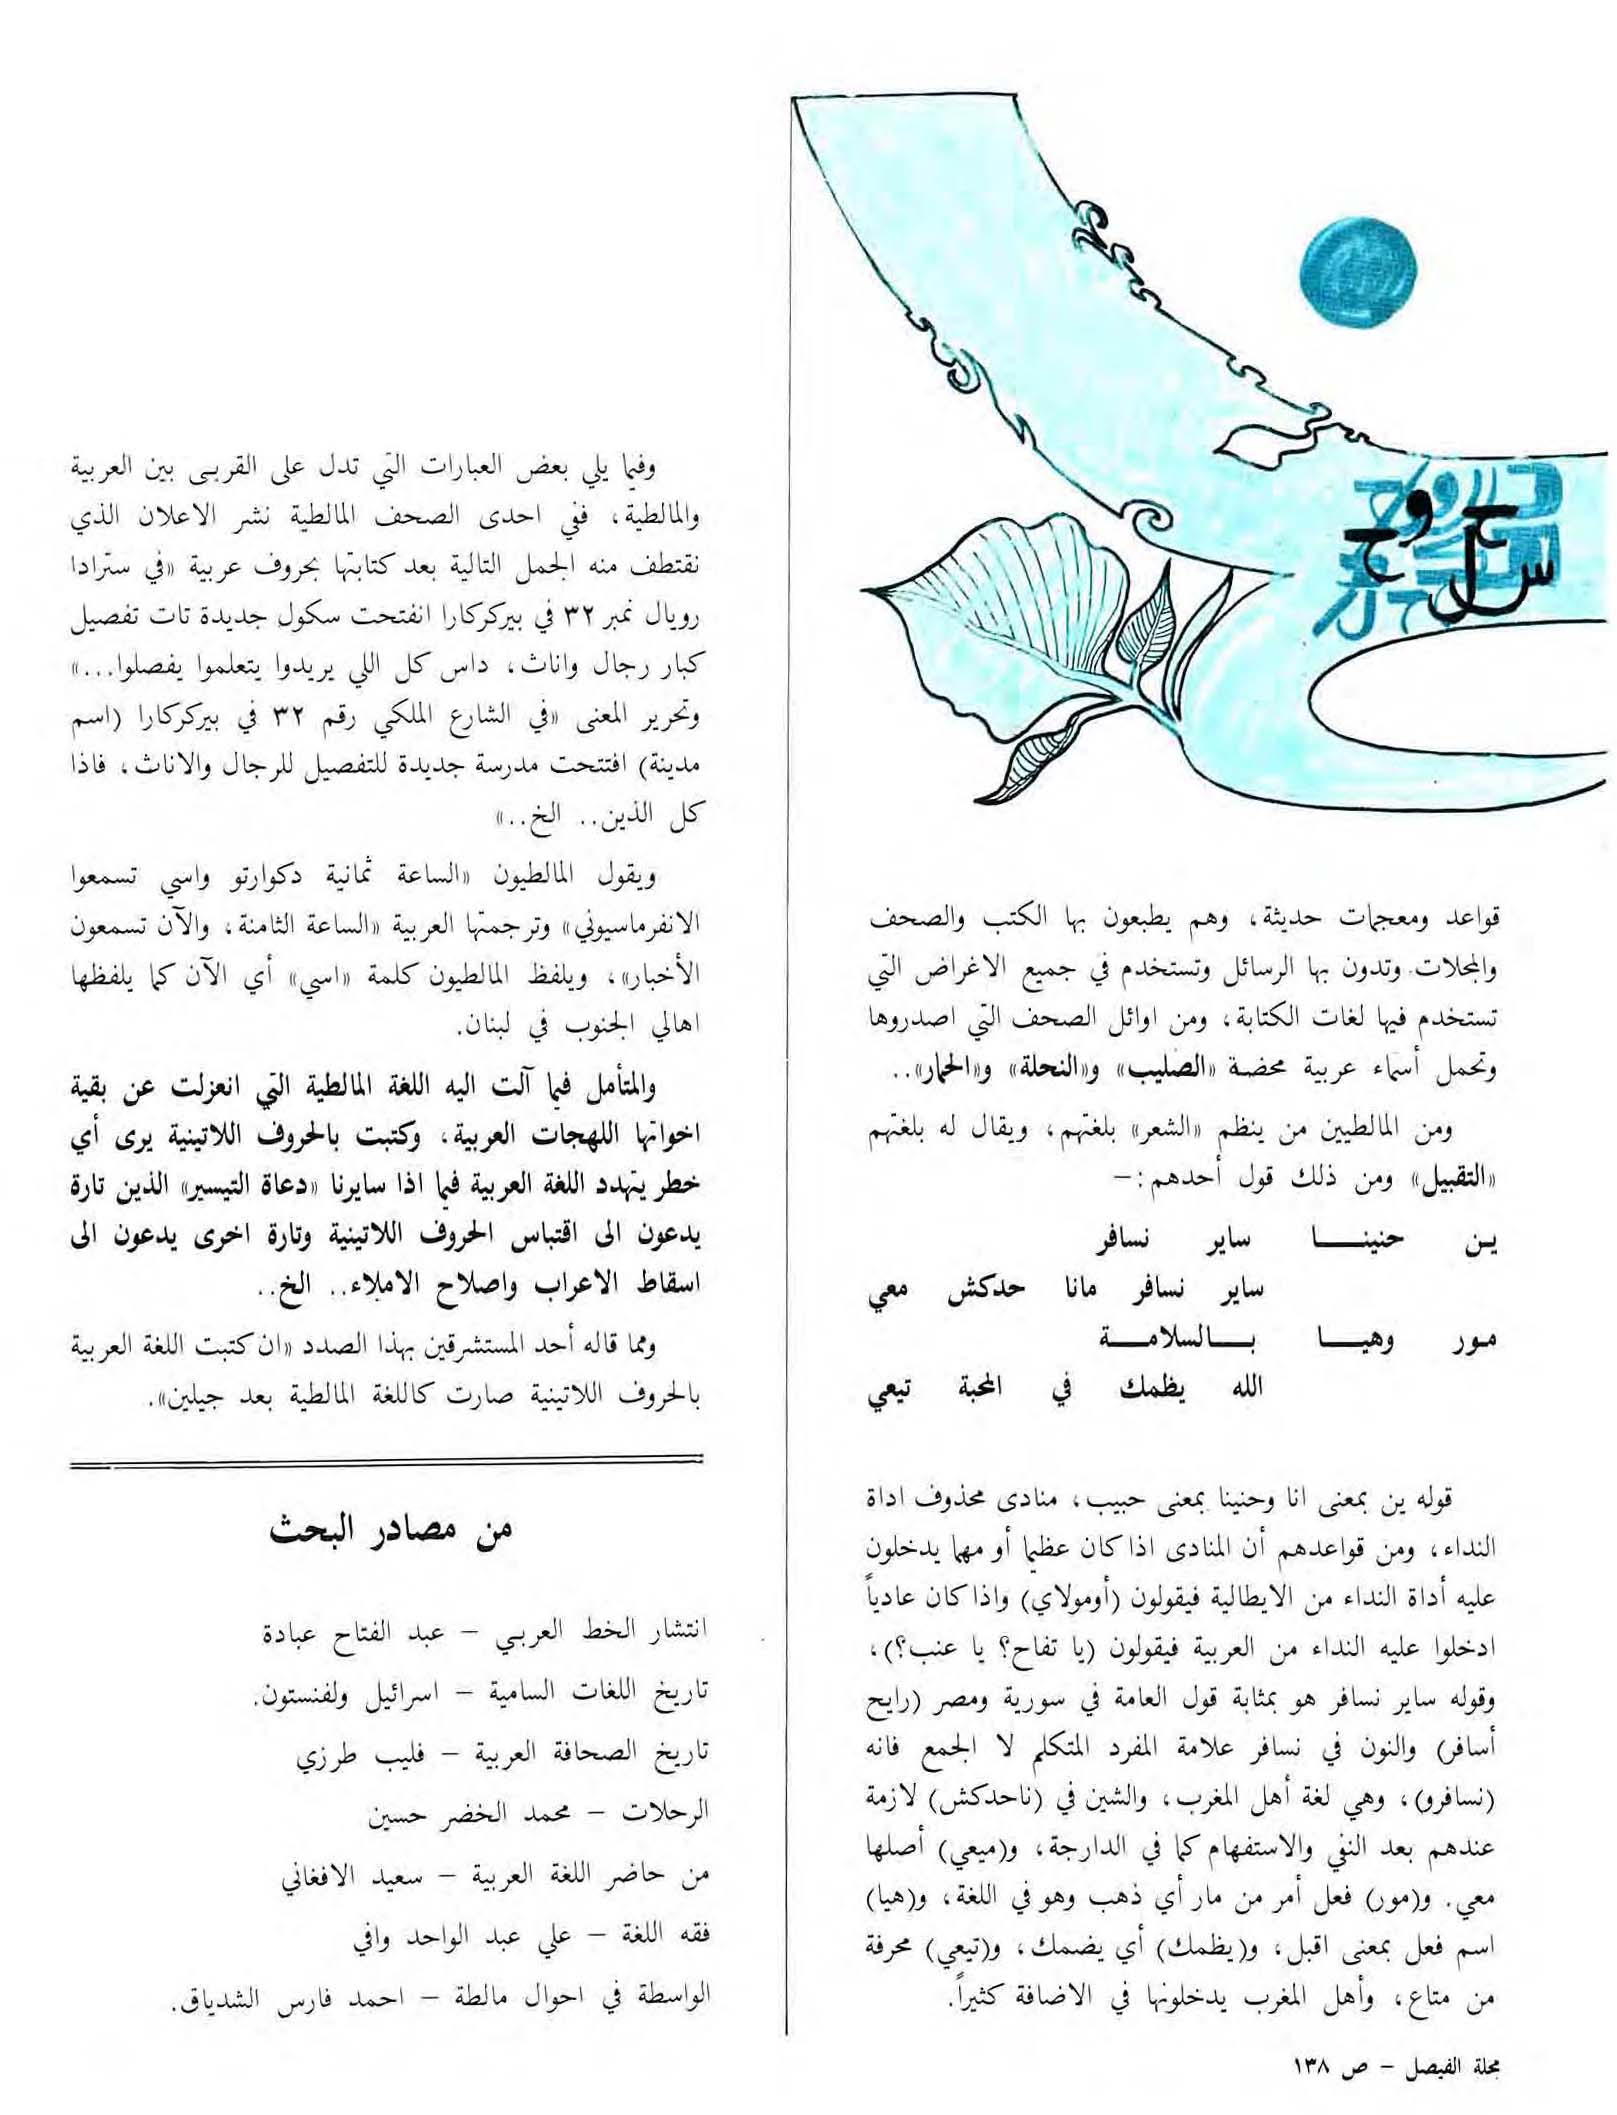 قواعد ومعجمات حديثة، وهم يطبعون بها الكتب والصحف
والمجلات وتدون بها الرسائل وتستخدم في جميع الاغراض التي
تستخدم فيها لغات الكتابة، ومن اوائل الصحف التي اصدروها
وتحمل أسماء عربية محضة «الصليب» و«النحلة» و«الحمار»..
ومن المالطيين من ينظم «الشعر» بلغتهم، ويقال له بلغتهم
«التقبيل» ومن ذلك قول أحدهم:–
ين حنينـا ساير نسافر
ساير نسافر مانا حدكش معي
مور وهيـا بـالسلامـة
الله يظمك في المحبة تيعي
قوله ين بمعنى انا وحنينا بمعنى حبيب، منادى محذوف اداة
النداء، ومن قواعدهم أن المنادى اذا كان عظيما أو مهما يدخلون
عليه أداة النداء من الايطالية فيقولون (أومولاي) واذا كان عادياً
ادخلوا عليه النداء من العربية فيقولون (يا تفاح؟ يا عنب؟)،
وقوله ساير نسافر هو بمثابة قول العامة في سورية ومصر (رايح
أسافر) والنون في نسافر علامة المفرد المتكلم لا الجمع فانه
(نسافرو)، وهي لغة أهل المغرب، والشين في (ناحدكش) لازمة
عندهم بعد النفي والاستفهام كما في الدارجة، و(ميعي) أصلها
معي. و(مور) فعل أمر من مار أي ذهب وهو في اللغة، و(هيا)
اسم فعل بمعنى اقبل، و(يظمك) أي يضمك، و(تيعي) محرفة
من متاع، وأهل المغرب يدخلونها في الاضافة كثيراً.
وفيما يلي بعض العبارات التي تدل على القربى بين العربية
والمالطية، ففي احدى الصحف المالطية نشر الاعلان الذي
نقتطف منه الجمل التالية بعد كتابتها بحروف عربية «في سترادا
رويال نمبر ٣٢ في بيركركارا انفتحت سكول جديدة تات تفصيل
كبار رجال واناث، داس كل اللي يريدوا يتعلموا يفصلوا...»
وتحرير المعنى «في الشارع الملكي رقم ٣٢ في بيركركارا (اسم
مدينة) افتتحت مدرسة جديدة للتفصيل للرجال والاناث، فاذا
كل الذين.. الخ..»
ويقول المالطيون «الساعة ثمانية دكوارتو واسي تسمعوا
الانفرماسيوني» وترجمتها العربية «الساعة الثامنة، والآن تسمعون
الأخبار»، ويلفظ المالطيون كلمة «اسي» أي الآن كما يلفظها
اهالي الجنوب في لبنان.
والمتأمل فيما آلت اليه اللغة المالطية التي انعزلت عن بقية
اخواتها اللهجات العربية، وكتبت بالحروف اللاتينية يرى أي
خطر يتهدد اللغة العربية فيما اذا سايرنا «دعاة التيسير» الذين تارة
يدعون الى اقتباس الحروف اللاتينية وتارة اخرى يدعون الى
اسقاط الاعراب واصلاح الاملاء.. الخ..
ومما قاله أحد المستشرقين بهذا الصدد «ان كتبت اللغة العربية
بالحروف اللاتينية صارت كاللغة المالطية بعد جيلين».
من مصادر البحث
انتشار الخط العربي – عبد الفتاح عبادة
تاريخ اللغات السامية – اسرائيل ولفنستون.
تاريخ الصحافة العربية – فليب طرزي
الرحلات – محمد الخضر حسين
من حاضر اللغة العربية – سعيد الافغاني
فقه اللغة – علي عبد الواحد وافي
الواسطة في احوال مالطة – احمد فارس الشدياق.
مجلة الفيصل – ص ١٣٨